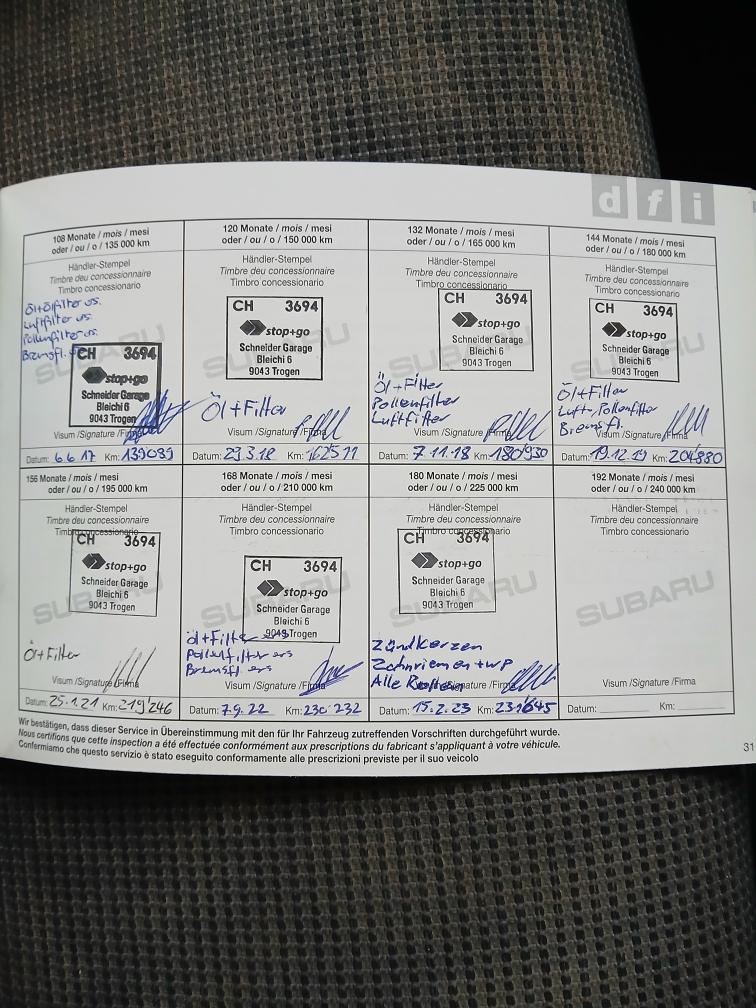 dfi
108 Monate / mois / mesi
oder / ou / o / 135 000 km
Händler-Stempel
Timbre deu concessionnaire
Timbro concessionario
Öl+Ölfilter ers.
Luftfilter ers.
Pollenfilter ers.
Bremsfl.
SUBARU
CH 3694
stop+go
Schneider Garage
Bleichi 6
9043 Trogen
Visum /Signature /Firma
Datum: 6.6.17 Km: 139089
120 Monate / mois / mesi
oder / ou / o / 150 000 km
Händler-Stempel
Timbre deu concessionnaire
Timbro concessionario
CH 3694
stop+go
Schneider Garage
Bleichi 6
9043 Trogen
SUBARU
Öl+Filter
Visum /Signature /Firma
Datum: 23.3.18 Km: 162511
132 Monate / mois / mesi
oder / ou / o / 165 000 km
Händler-Stempel
Timbre deu concessionnaire
Timbro concessionario
CH 3694
stop+go
Schneider Garage
Bleichi 6
9043 Trogen
SUBARU
Öl+Filter
Pollenfilter
Luftfilter
Visum /Signature /Firma
Datum: 7.11.18 Km: 180930
144 Monate / mois / mesi
oder / ou / o / 180 000 km
Händler-Stempel
Timbre deu concessionnaire
Timbro concessionario
CH 3694
stop+go
Schneider Garage
Bleichi 6
9043 Trogen
SUBARU
Öl+Filter
Luft-Pollenfilter
Bremsfl.
Visum /Signature /Firma
Datum: 19.12.19 Km: 204880
156 Monate / mois / mesi
oder / ou / o / 195 000 km
Händler-Stempel
Timbre deu concessionnaire
Timbro concessionario
CH 3694
stop+go
Schneider Garage
Bleichi 6
9043 Trogen
SUBARU
Öl+Filter
Visum /Signature /Firma
Datum: 25.1.21 Km: 219'246
168 Monate / mois / mesi
oder / ou / o / 210 000 km
Händler-Stempel
Timbre deu concessionnaire
Timbro concessionario
CH 3694
stop+go
Schneider Garage
Bleichi 6
9043 Trogen
SUBARU
Öl+Filter ers
Pollenfilter ers
Bremsfl. ers
Visum /Signature /Firma
Datum: 7.9.22 Km: 230'232
180 Monate / mois / mesi
oder / ou / o / 225 000 km
Händler-Stempel
Timbre deu concessionnaire
Timbro concessionario
CH 3694
stop+go
Schneider Garage
Bleichi 6
9043 Trogen
SUBARU
Zündkerzen
Zahnriemen+WP
Alle Rollen
Visum /Signature /Firma
Datum: 15.2.23 Km: 231'645
192 Monate / mois / mesi
oder / ou / o / 240 000 km
Händler-Stempel
Timbre deu concessionnaire
Timbro concessionario
SUBARU
Visum /Signature /Firma
Datum: Km:
Wir bestätigen, dass dieser Service in Übereinstimmung mit den für Ihr Fahrzeug zutreffenden Vorschriften durchgeführt wurde.
Nous certifions que cette inspection a été effectuée conformément aux prescriptions du fabricant s'appliquant à votre véhicule.
Confermiamo che questo servizio è stato eseguito conformamente alle prescrizioni previste per il suo veicolo
31